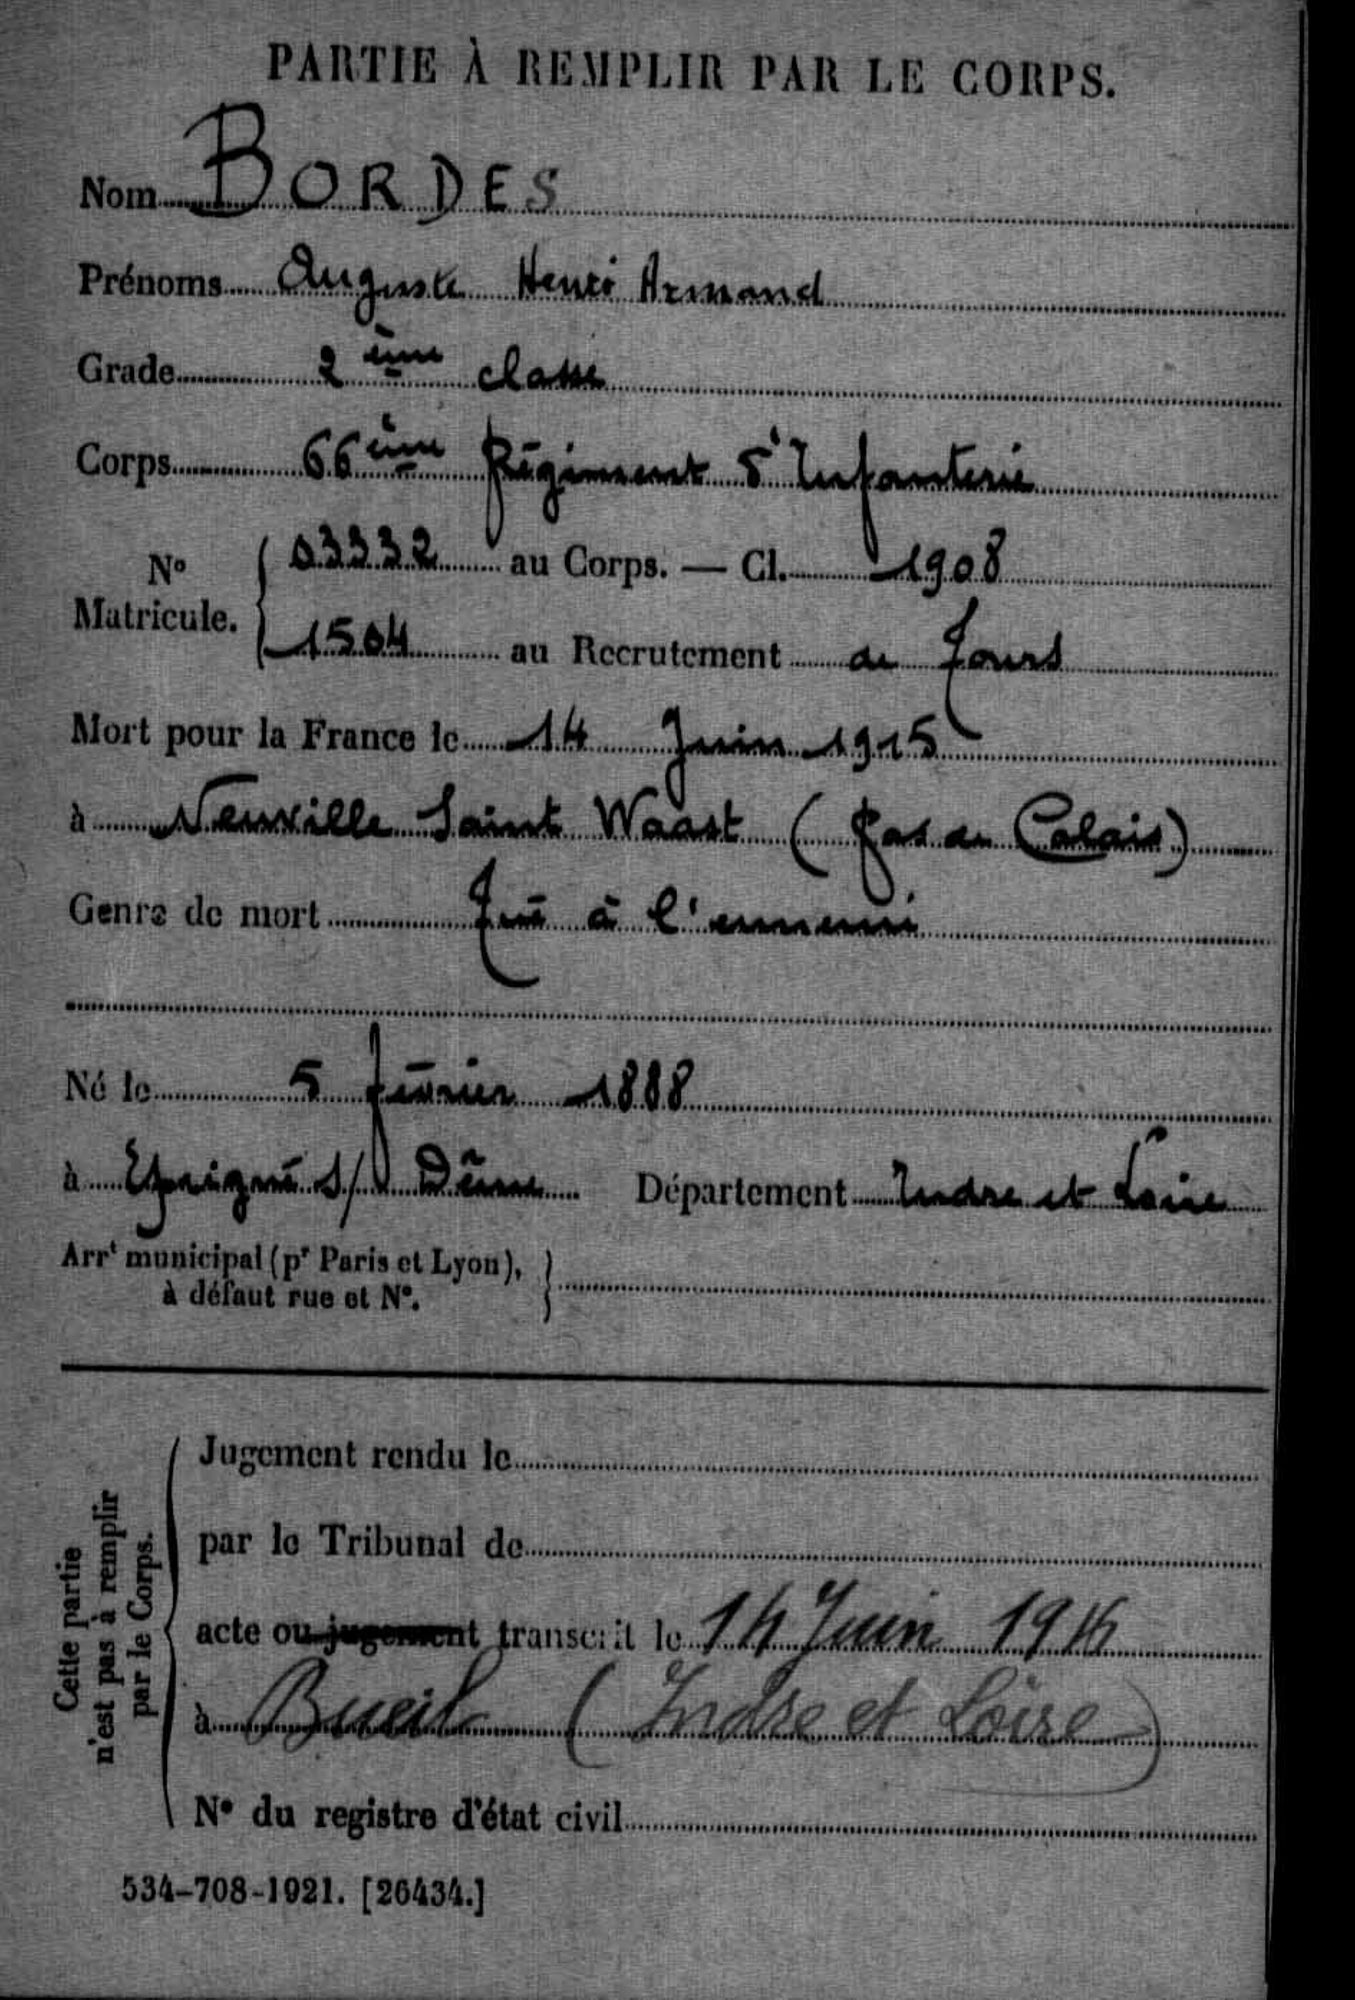 PARTIE À REMPLIR PAR LE CORPS.
Nom BORDES
Prénoms Auguste Henri Armand
Grade 2 ème classe
Corps 66 ème Régiment d'Infanterie
N° Matricule. { 03332 au Corps. — Cl. 1908
1504 au Recrutement de Tours
Mort pour la France le 14 Juin 1915
à Neuville Saint Waast (Pas de Calais)
Genre de mort Tué à l'ennemi
Né le 5 février 1888
à Epeigné s/ Dême Département Indre et Loire
Arrt municipal (pr Paris et Lyon), à défaut rue et N°. }
Cette partie n'est pas à remplir par le Corps.
Jugement rendu le
par le Tribunal de
acte ou jugement transcrit le 14 Juin 1916
à Bueil (Indre et Loire)
N° du registre d'état civil
534-708-1921. [26434.]